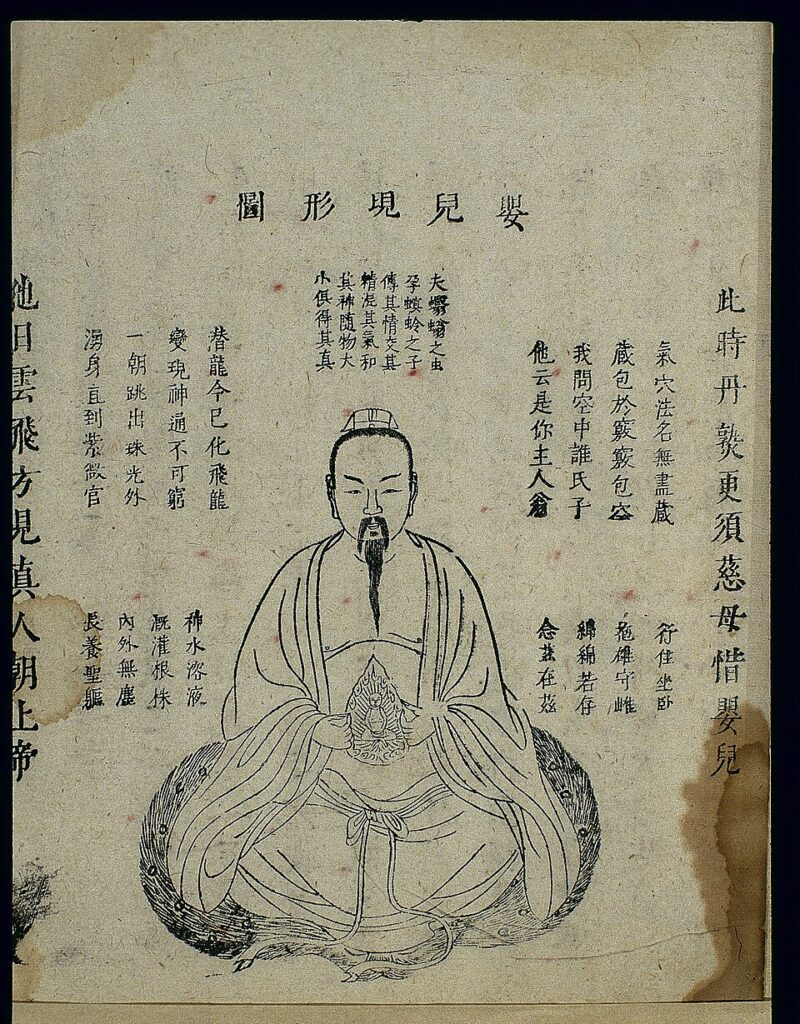 嬰兒現形圖
此時丹熟更須慈母惜嬰兒
氣穴法名無盡藏
藏包於竅竅包空
我問空中誰氏子
他云是你主人翁
行住坐臥
抱雄守雌
綿綿若存
念茲在茲
夫蠮螉之虫
孕螟蛉之子
傳其情交其
精混其氣和
其神隨物大
小俱得其真
潛龍今已化飛龍
變現神通不可窮
一朝跳出珠光外
湧身直到紫微宮
神水溶液
溉灌根株
內外無塵
長養聖軀
他日雲飛方見真人朝上帝